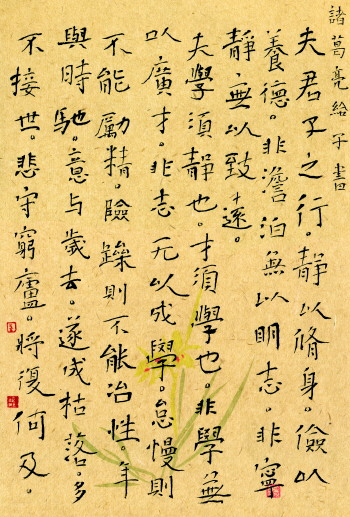 諸葛亮給子書
夫君子之行。靜以脩身。儉以
養德。非澹泊無以明志。非寧
靜無以致遠。
夫學須靜也。才須學也。非學無
以廣才。非志无以成學。怠慢則
不能勵精。險躁則不能冶性。年
與時馳。意与歲去。遂成枯落。多
不接世。悲守窮廬。將復何及。